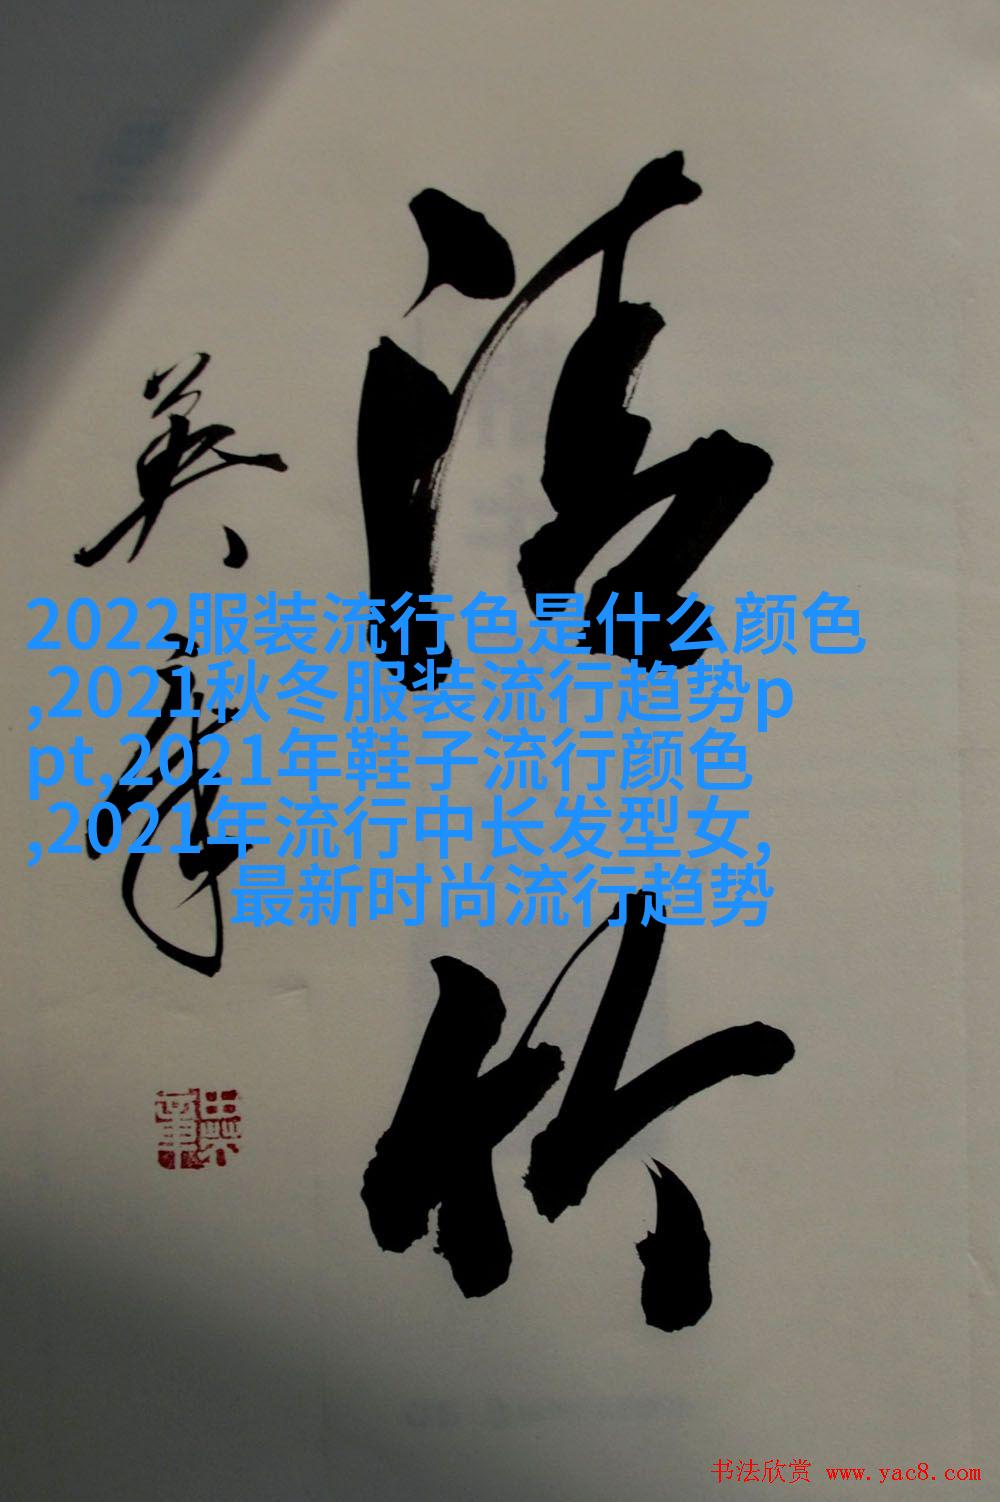 2022服装流行色是什么颜色
,2021秋冬服装流行趋势p
pt,2021年鞋子流行颜色
,2021年流行中长发型女,
最新时尚流行趋势
英
书法欣赏 www.yac8.com